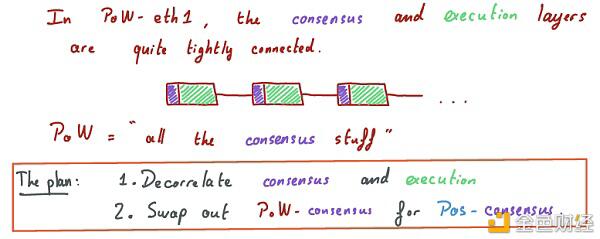 In PoW-eth1, the consensus and execution layers
are quite tightly connected.
...
PoW = "all the consensus stuff"
The plan: 1. Decorrelate consensus and execution
2. Swap out PoW-consensus for Pos-consensus
金色财经